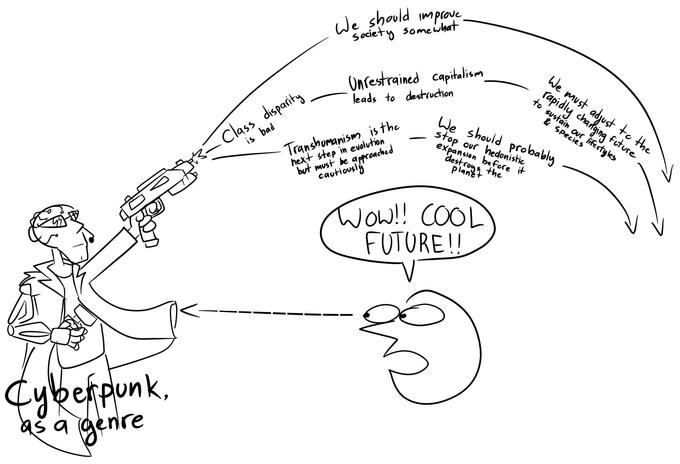 We should improve
society somewhat
Unrestrained capitalism
leads to destruction
Class disparity
is bad
We must adjust to the
rapidly changing future
to sustain our lifestyles
& species
Transhumanism is the
next step in evolution
but must be approached
cautiously
We should probably
stop our hedonistic
expansion before it
destroys the
planet
WOW!! COOL
FUTURE!!
Cyberpunk,
as a genre